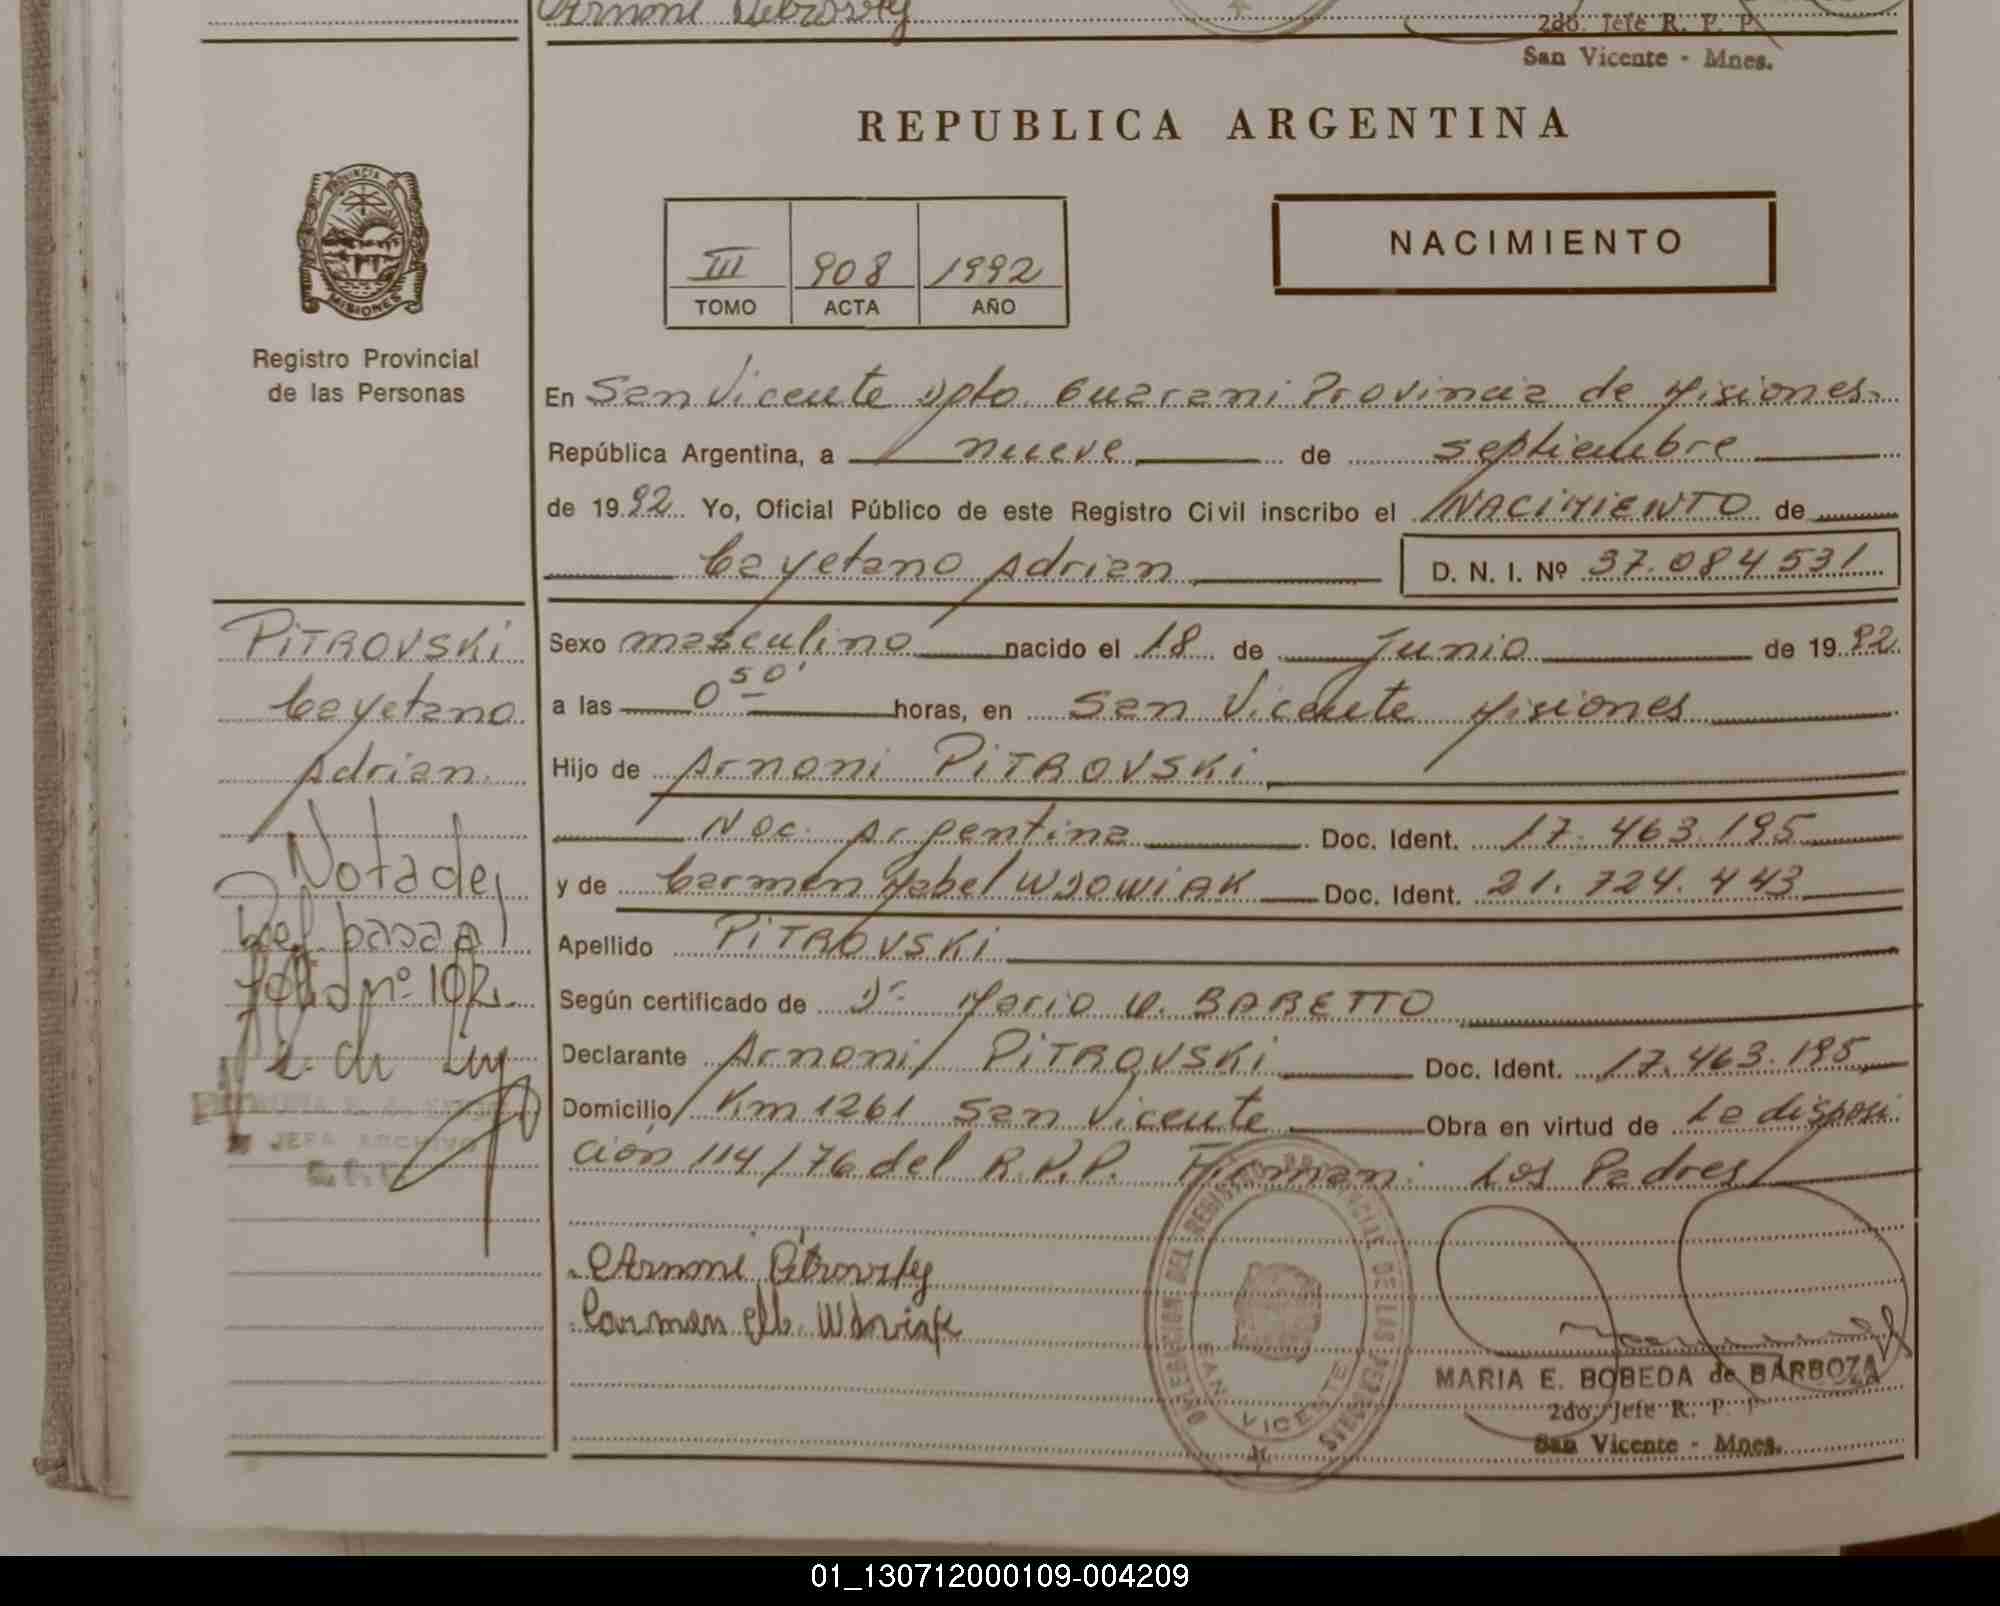 Arnoni Pitrovsky
2do. Jefe R. P. P.
San Vicente - Mnes.
REPUBLICA ARGENTINA
PROVINCIA DE
MISIONES
Registro Provincial
de las Personas
III 908 1992
TOMO ACTA AÑO
NACIMIENTO
En San Vicente Dpto. Guarani Provincia de Misiones.
República Argentina, a nueve de septiembre
de 1992 Yo, Oficial Público de este Registro Civil inscribo el NACIMIENTO de
Cayetano Adrian D. N. I. Nº 37.084531
PITROVSKI
Cayetano
Adrian
Sexo masculino nacido el 18 de Junio de 1992
a las 0 50' horas, en San Vicente Misiones
Hijo de Arnoni PITROVSKI
Nac. Argentina Doc. Ident. 17.463.195
y de Carmen Mabel WDOWIAK Doc. Ident. 21.724.443
Apellido PITROVSKI
Según certificado de Dr. Mario V. BARETTO
Declarante Arnoni PITROVSKI Doc. Ident. 17.463.195
Domicilio Km 1261 San Vicente Obra en virtud de La disposi
ción 114/76 del R.P.P. Firman: Los Padres
Nota de
Ref. pasa al
folio nº 102
JEFA ARCHIVO
Arnoni Pitrovsky
Carmen M. Wdoviak
DIRECCION DEL REGISTRO PROVINCIAL DE LAS PERSONAS
SAN VICENTE
MARIA E. BOBEDA de BARBOZA
2do. Jefe R. P. P.
San Vicente - Mnes.
01_130712000109-004209